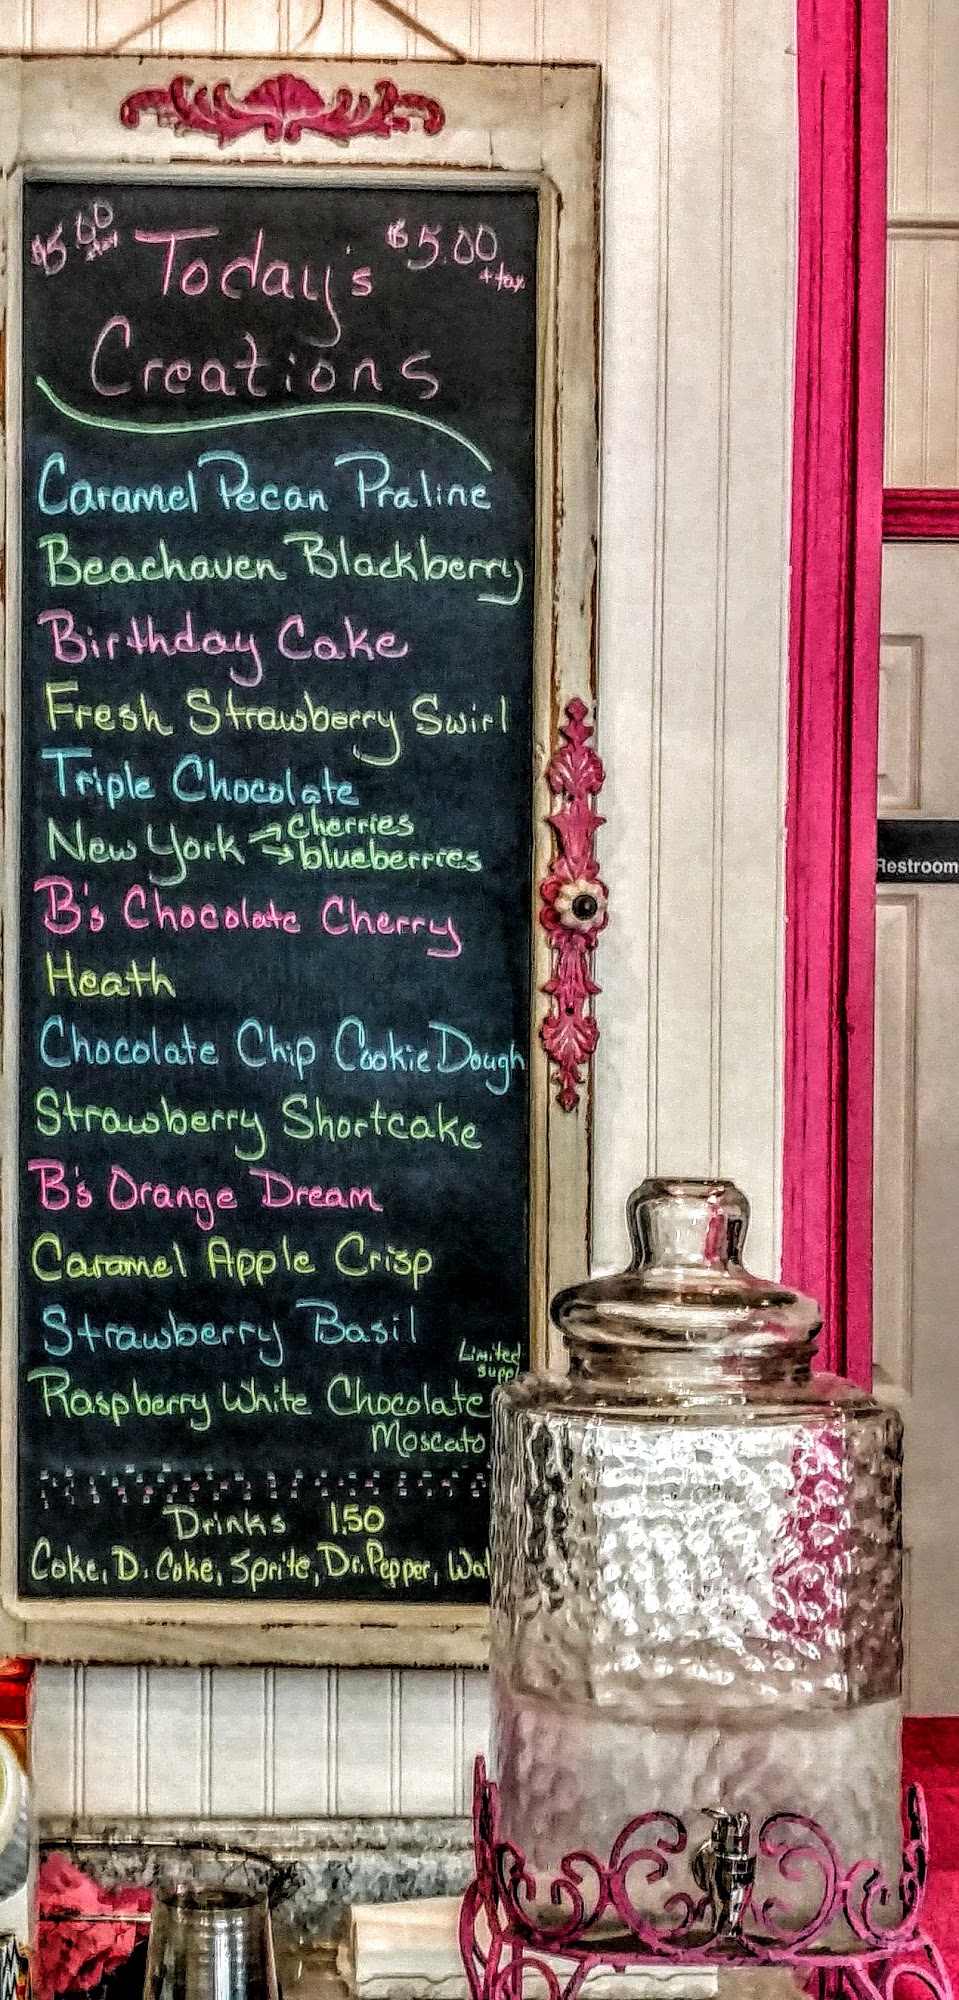 $5.00 +tax Today's $5.00 +tax
Creations
Caramel Pecan Praline
Beachaven Blackberry
Birthday Cake
Fresh Strawberry Swirl
Triple Chocolate
New York → cherries
→ blueberries
B's Chocolate Cherry
Heath
Chocolate Chip Cookie Dough
Strawberry Shortcake
B's Orange Dream
Caramel Apple Crisp
Strawberry Basil
Limited
Raspberry White Chocolate
Moscato
Drinks 1.50
Coke, D. Coke, Sprite, Dr. Pepper,
Restroom